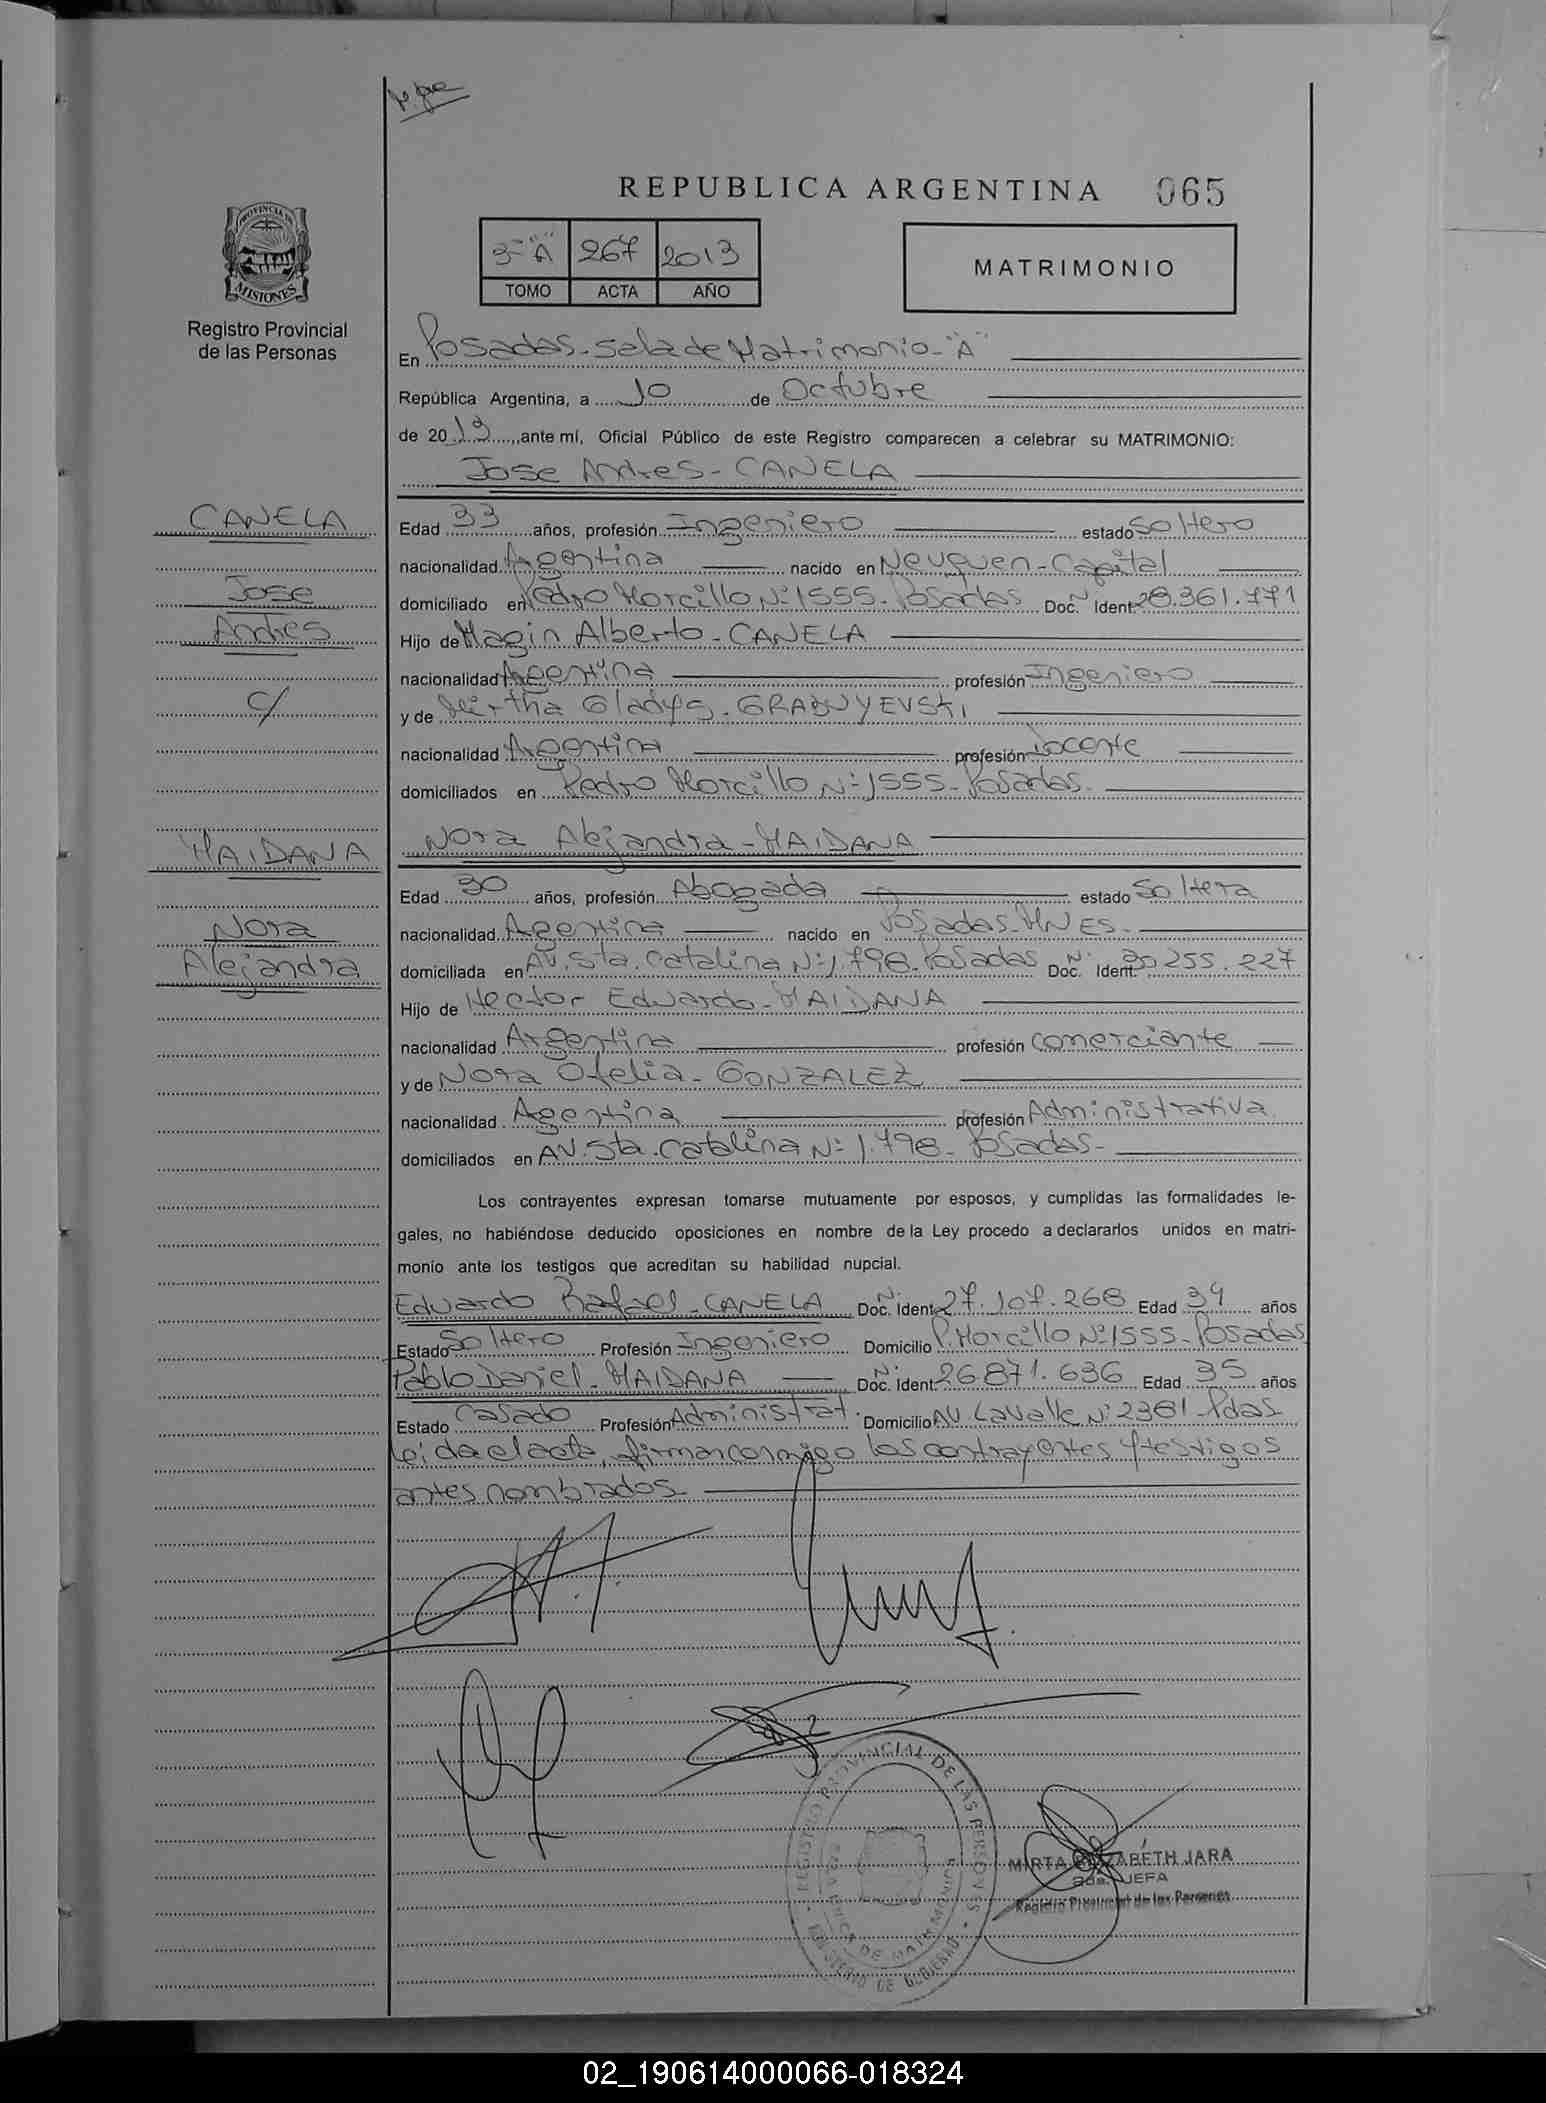 REPUBLICA ARGENTINA 065
PROVINCIA DE
MISIONES
Registro Provincial
de las Personas
3-"A" 267 2013
TOMO ACTA AÑO
MATRIMONIO
En Posadas-Sala de Matrimonio-"A"
República Argentina, a 10 de Octubre
de 2013, ante mí, Oficial Público de este Registro comparecen a celebrar su MATRIMONIO:
Jose Andres-CANELA
CANELA
Jose
Andres
c/
Edad 33 años, profesión Ingeniero estado Soltero
nacionalidad Argentina nacido en Neuquen-Capital
domiciliado en Pedro Morcillo Nº 1555-Posadas Doc. Nº Ident. 28.361.771
Hijo de Magin Alberto-CANELA
nacionalidad Argentina profesión Ingeniero
y de Mirtha Gladys-
nacionalidad Argentina profesión Docente
domiciliados en Pedro Morcillo Nº 1555-Posadas-
Nora Alejandra-MAIDANA
MAIDANA
Nora
Alejandra
Edad 30 años, profesión Abogada estado Soltera
nacionalidad Argentina nacido en Posadas-MNES-
domiciliada en AV. Sta. Catalina Nº 1.798-Posadas Doc. Nº Ident. 30 255.227
Hijo de Hector Eduardo-MAIDANA
nacionalidad Argentina profesión comerciante
y de Nora Ofelia-GONZALEZ
nacionalidad Argentina profesión Administrativa
domiciliados en AV. Sta. Catalina Nº 1.798-Posadas-
Los contrayentes expresan tomarse mutuamente por esposos, y cumplidas las formalidades le-
gales, no habiéndose deducido oposiciones en nombre de la Ley procedo a declararlos unidos en matri-
monio ante los testigos que acreditan su habilidad nupcial.
Eduardo Rafael-CANELA Doc. Nº Ident. 27.107.268 Edad 34 años
Estado Soltero Profesión Ingeniero Domicilio P. Morcillo Nº 1555-Posadas
Pablo Daniel-MAIDANA Doc. Nº Ident. 26871.636 Edad 35 años
Estado Casado Profesión Administrat. Domicilio AV. Lavalle Nº 2361-Pdas
Leida el acta, firman conmigo los contrayentes y testigos
antes nombrados-
REGISTRO PROVINCIAL DE LAS PERSONAS
MINISTERIO DE GOBIERNO
MIRTA ELIZABETH JARA
JEFA
Registro Provincial de las Personas
02_190614000066-018324